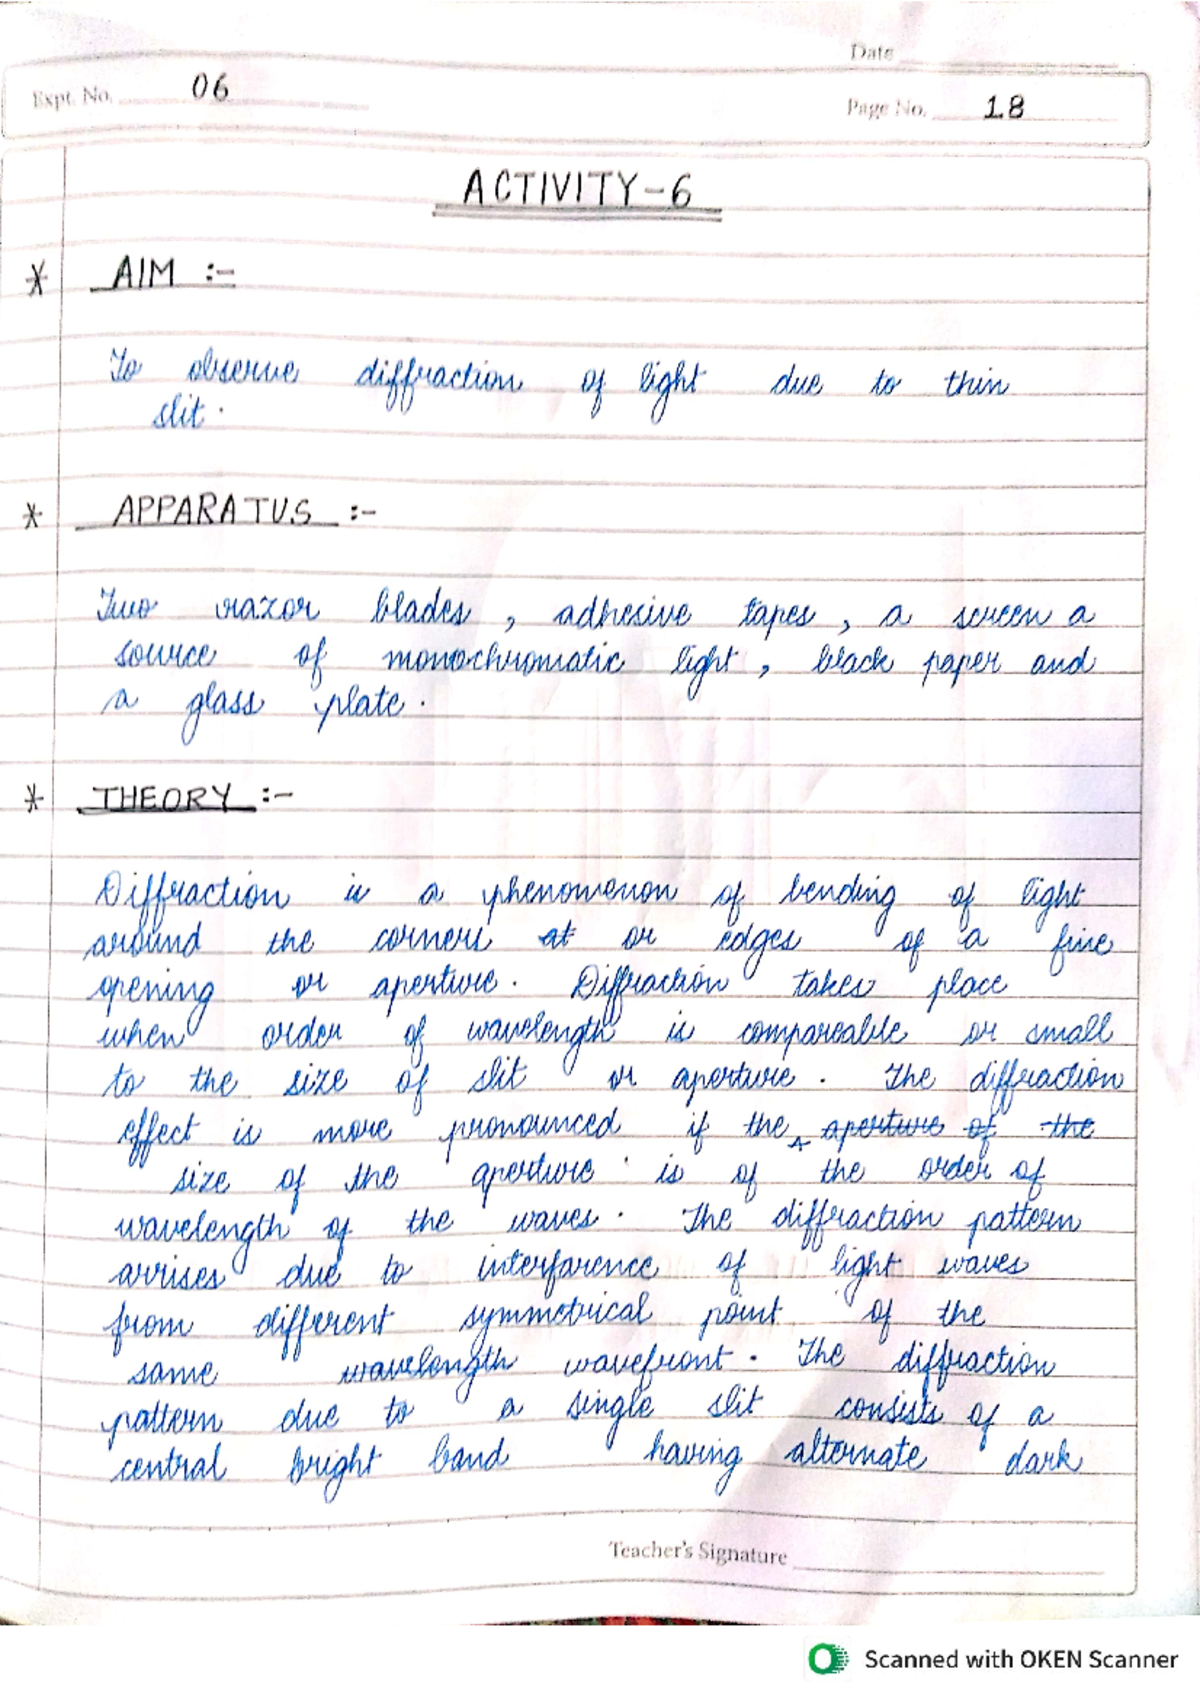 Date
Expt. No. 06
Page No. 18
ACTIVITY-6
* AIM :-
To observe diffraction of light due to thin
slit.
* APPARATUS :-
Two razor blades, adhesive tapes, a screen a
source of monochromatic light, black paper and
a glass plate.
* THEORY :-
Diffraction is a phenomenon of bending of light
around the corners at or edges of a fine
opening or aperture. Diffraction takes place
when order of wavelength is compareable or small
to the size of slit or aperture. The diffraction
effect is more pronounced if the aperture of the
size of the aperture is of the order of
wavelength of the waves. The diffraction pattern
arrises due to interfarence of light waves
from different symmetrical point of the
same wavelength wavefront. The diffraction
pattern due to a single slit consists of a
central bright band having alternate dark
Teacher's Signature
Scanned with OKEN Scanner